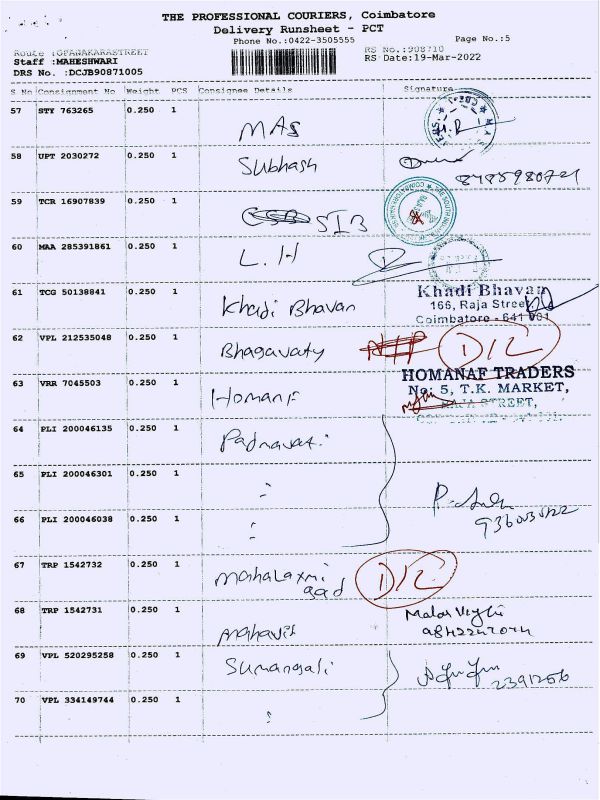 THE PROFESSIONAL COURIERS, Coimbatore
Delivery Runsheet - PCT
Phone No.:0422-3505555 Page No.:5
Route :GPANAKARASTREET RS No.:908710
Staff :MAHESHWARI RS Date:19-Mar-2022
DRS No. :DCJB90871005
S No Consignment No Weight PCS Consignee Details Signature
57 STY 763265 0.250 1
MAS
58 UPT 2030272 0.250 1
Subhash
59 TCR 16907839 0.250 1
SIB
60 MAA 285391861 0.250 1
L.H
61 TCG 50138841 0.250 1
Khadi Bhavan
Khadi Bhavan
166, Raja Street
Coimbatore - 641 001
62 VPL 212535048 0.250 1
Bhagavaty D/C
63 VRR 7045503 0.250 1
Homanf
HOMANAF TRADERS
No: 5, T.K. MARKET,
RAJA STREET,
64 PLI 200046135 0.250 1
Padmavati
65 PLI 200046301 0.250 1
66 PLI 200046038 0.250 1
67 TRP 1542732 0.250 1
mahalaxmi D/C
68 TRP 1542731 0.250 1
69 VPL 520295258 0.250 1
Sumangali
2391256
70 VPL 334149744 0.250 1